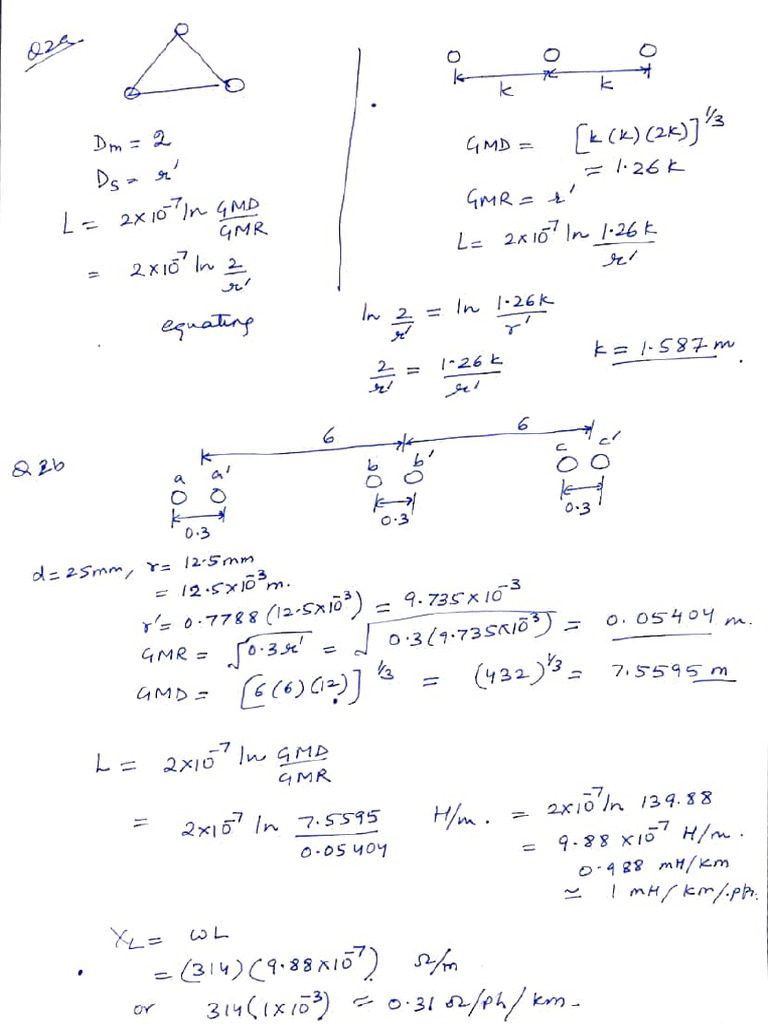 Q2a
Dm = 2
Ds = r'
L = 2×10^-7 ln GMD/GMR
= 2×10^-7 ln 2/r'
equating
k k
GMD = [k(k)(2k)]^1/3
= 1.26k
GMR = r'
L = 2×10^-7 ln 1.26k/r'
ln 2/r' = ln 1.26k/r'
2/r' = 1.26k/r'
k = 1.587 m.
Q2b
6 6
a a' b b' c c'
0.3 0.3 0.3
d = 25mm, r = 12.5mm
= 12.5×10^-3 m.
r' = 0.7788(12.5×10^-3) = 9.735×10^-3
GMR = √0.3r' = √0.3(9.735×10^-3) = 0.05404 m.
GMD = [6(6)(12)]^1/3 = (432)^1/3 = 7.5595 m
L = 2×10^-7 ln GMD/GMR
= 2×10^-7 ln 7.5595/0.05404 H/m. = 2×10^-7 ln 139.88
= 9.88×10^-7 H/m.
0.988 mH/km
≃ 1 mH/km/ph.
XL = ωL
= (314)(9.88×10^-7) Ω/m
or 314(1×10^-3) = 0.31 Ω/ph/km.